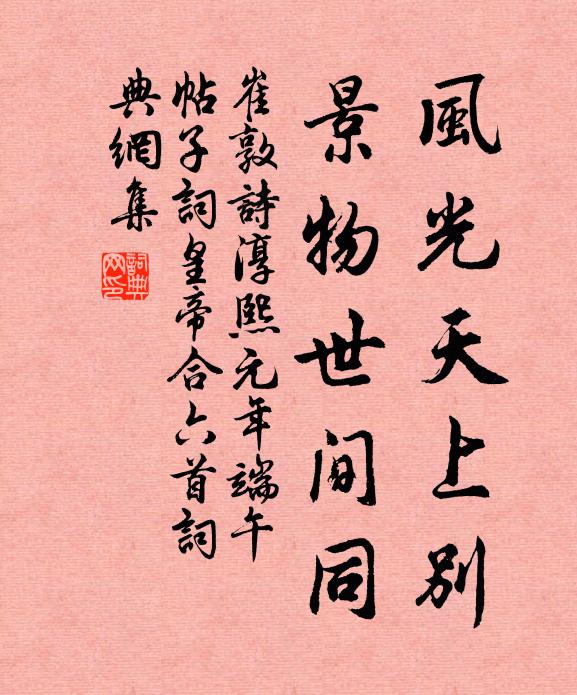 風光天上別
景物世间同
崔敦詩淳熙元年端午
帖子詞皇帝合六首詞
典網集
詞典
网印